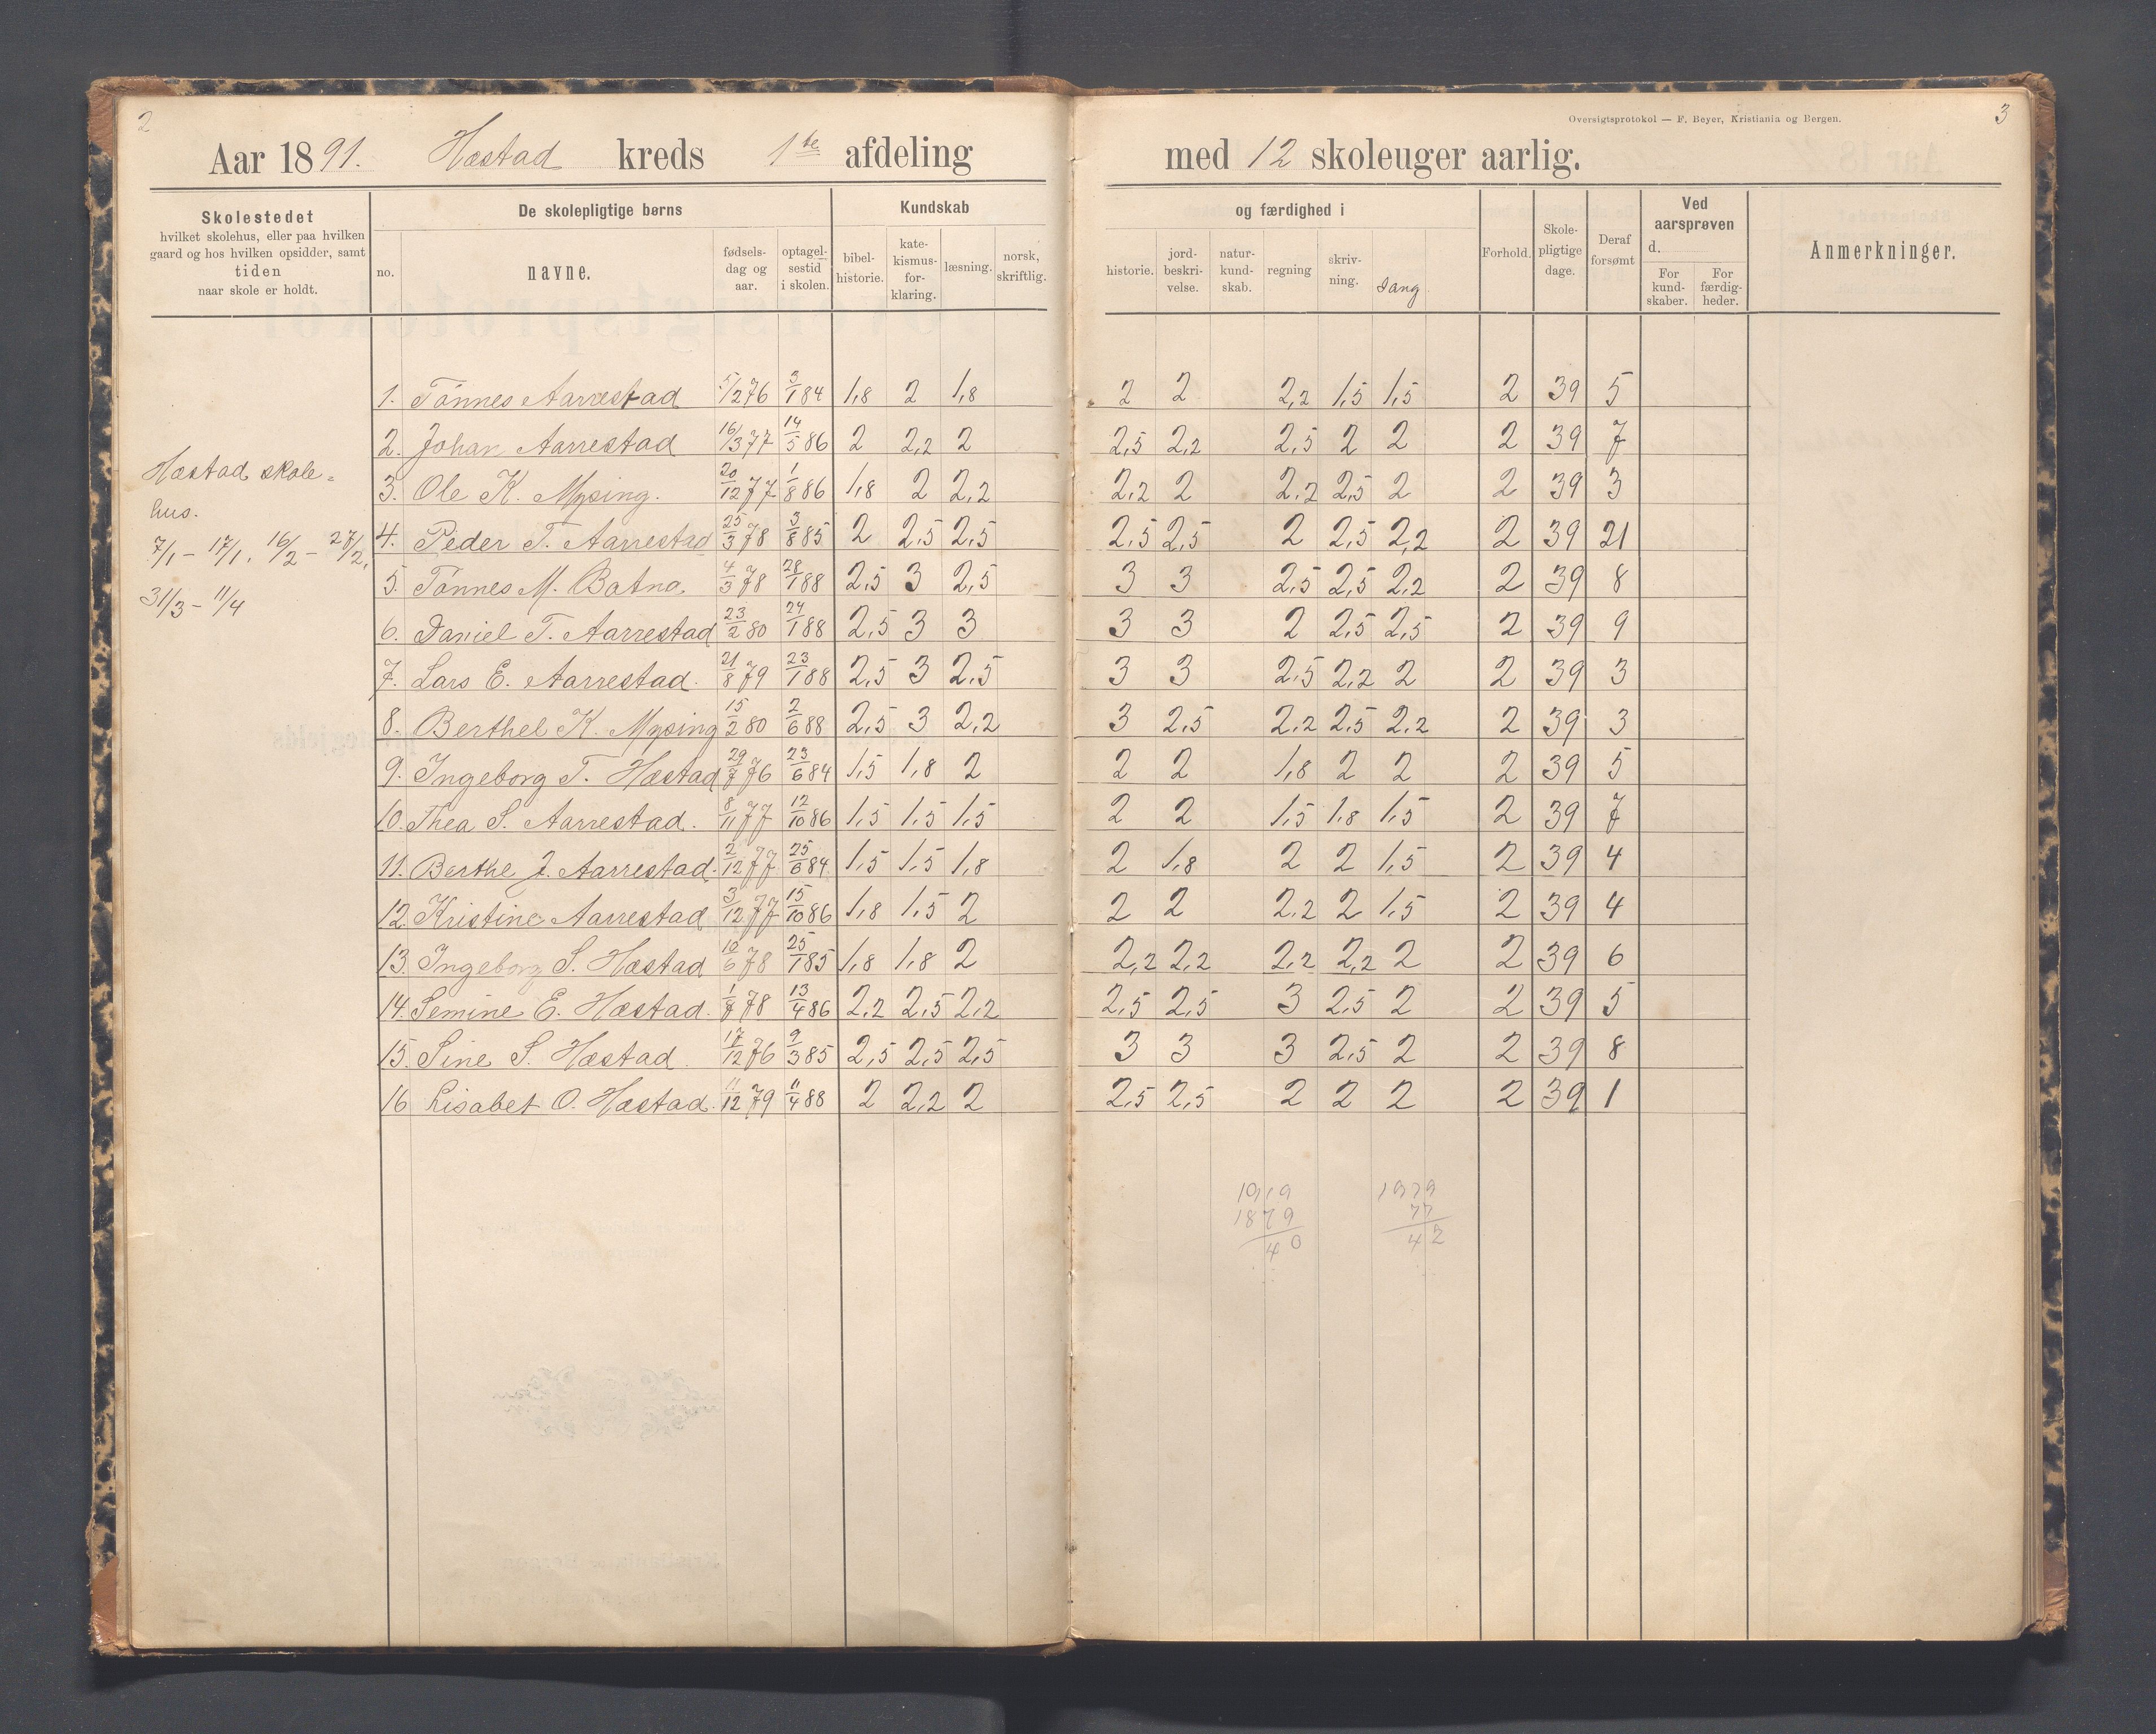 2
Aar 1891. Hæstad kreds 1ste afdeling
Skolestedet
hvilket skolehus, eller paa hvilken
gaard og hos hvilken opsidder, samt
tiden
naar skole er holdt.
De skolepligtige børns
no. navne. fødsels-dag og aar. optagel-sestid i skolen.
Kundskab
bibel-historie. kate-kismus-for-klaring. læsning. norsk, skriftlig.
Hæstad skole-
hus.
7/1 - 17/1. 16/2 - 27/2,
31/3 - 11/4
1. Tønnes Aarrestad 5/2 76 3/1 84 1,8 2 1,8
2. Johan Aarrestad 16/3 77 14/5 86 2 2,2 2
3. Ole K. Mysing. 20/12 77 1/8 86 1,8 2 2,2
4. Peder T. Aarrestad 25/3 78 3/8 85 2 2,5 2,5
5. Tønnes M. Botne. 4/3 78 28/1 88 2,5 3 2,5
6. Daniel T. Aarrestad 23/2 80 24/1 88 2,5 3 3
7. Lars E. Aarrestad. 21/8 79 23/1 88 2,5 3 2,5
8. Berthel K. Mysing 15/2 80 2/6 88 2,5 3 2,2
9. Ingeborg T. Hæstad 29/7 76 23/6 84 1,5 1,8 2
10. Thea S. Aarrestad. 8/11 77 12/10 86 1,5 1,5 1,5
11. Berthe J. Aarrestad. 2/12 77 25/6 84 1,5 1,5 1,8
12. Kristine Aarrestad 3/12 77 15/10 86 1,8 1,5 2
13. Ingeborg S. Hæstad 10/6 78 25/1 85 1,8 1,8 2
14. Semine E. Hæstad. 1/8 78 13/4 86 2,2 2,5 2,2
15. Sine S. Hæstad. 17/12 76 9/3 85 2,5 2,5 2,5
16 Lisabet O. Hæstad. 11/12 79 11/4 88 2 2,2 2
Oversigtsprotokol — F. Beyer, Kristiania og Bergen.
3
med 12 skoleuger aarlig.
og færdighed i
historie. jord-beskri-velse. natur-kund-skab. regning skriv-ning. Sang
Forhold. Skole-pligtige dage. Deraf forsømt
Ved aarsprøven
d.
For kund-skaber. For færdig-heder.
Anmerkninger.
2 2 2,2 1,5 1,5 2 39 5
2,5 2,2 2,5 2 2 2 39 7
2,2 2 2,2 2,5 2 2 39 3
2,5 2,5 2 2,5 2,2 2 39 21
3 3 2,5 2,5 2,2 2 39 8
3 3 2 2,5 2,5 2 39 9
3 3 2,5 2,2 2 2 39 3
3 2,5 2,2 2,5 2,2 2 39 3
2 2 1,8 2 2 2 39 5
2 2 1,5 1,8 1,5 2 39 7
2 1,8 2 2 1,5 2 39 4
2 2 2,2 2 1,5 2 39 4
2,2 2,2 2,2 2,2 2 2 39 6
2,5 2,5 3 2,5 2 2 39 5
3 3 3 2,5 2 2 39 8
2,5 2,5 2 2 2 2 39 1
1919 1919
1879 77
40 42